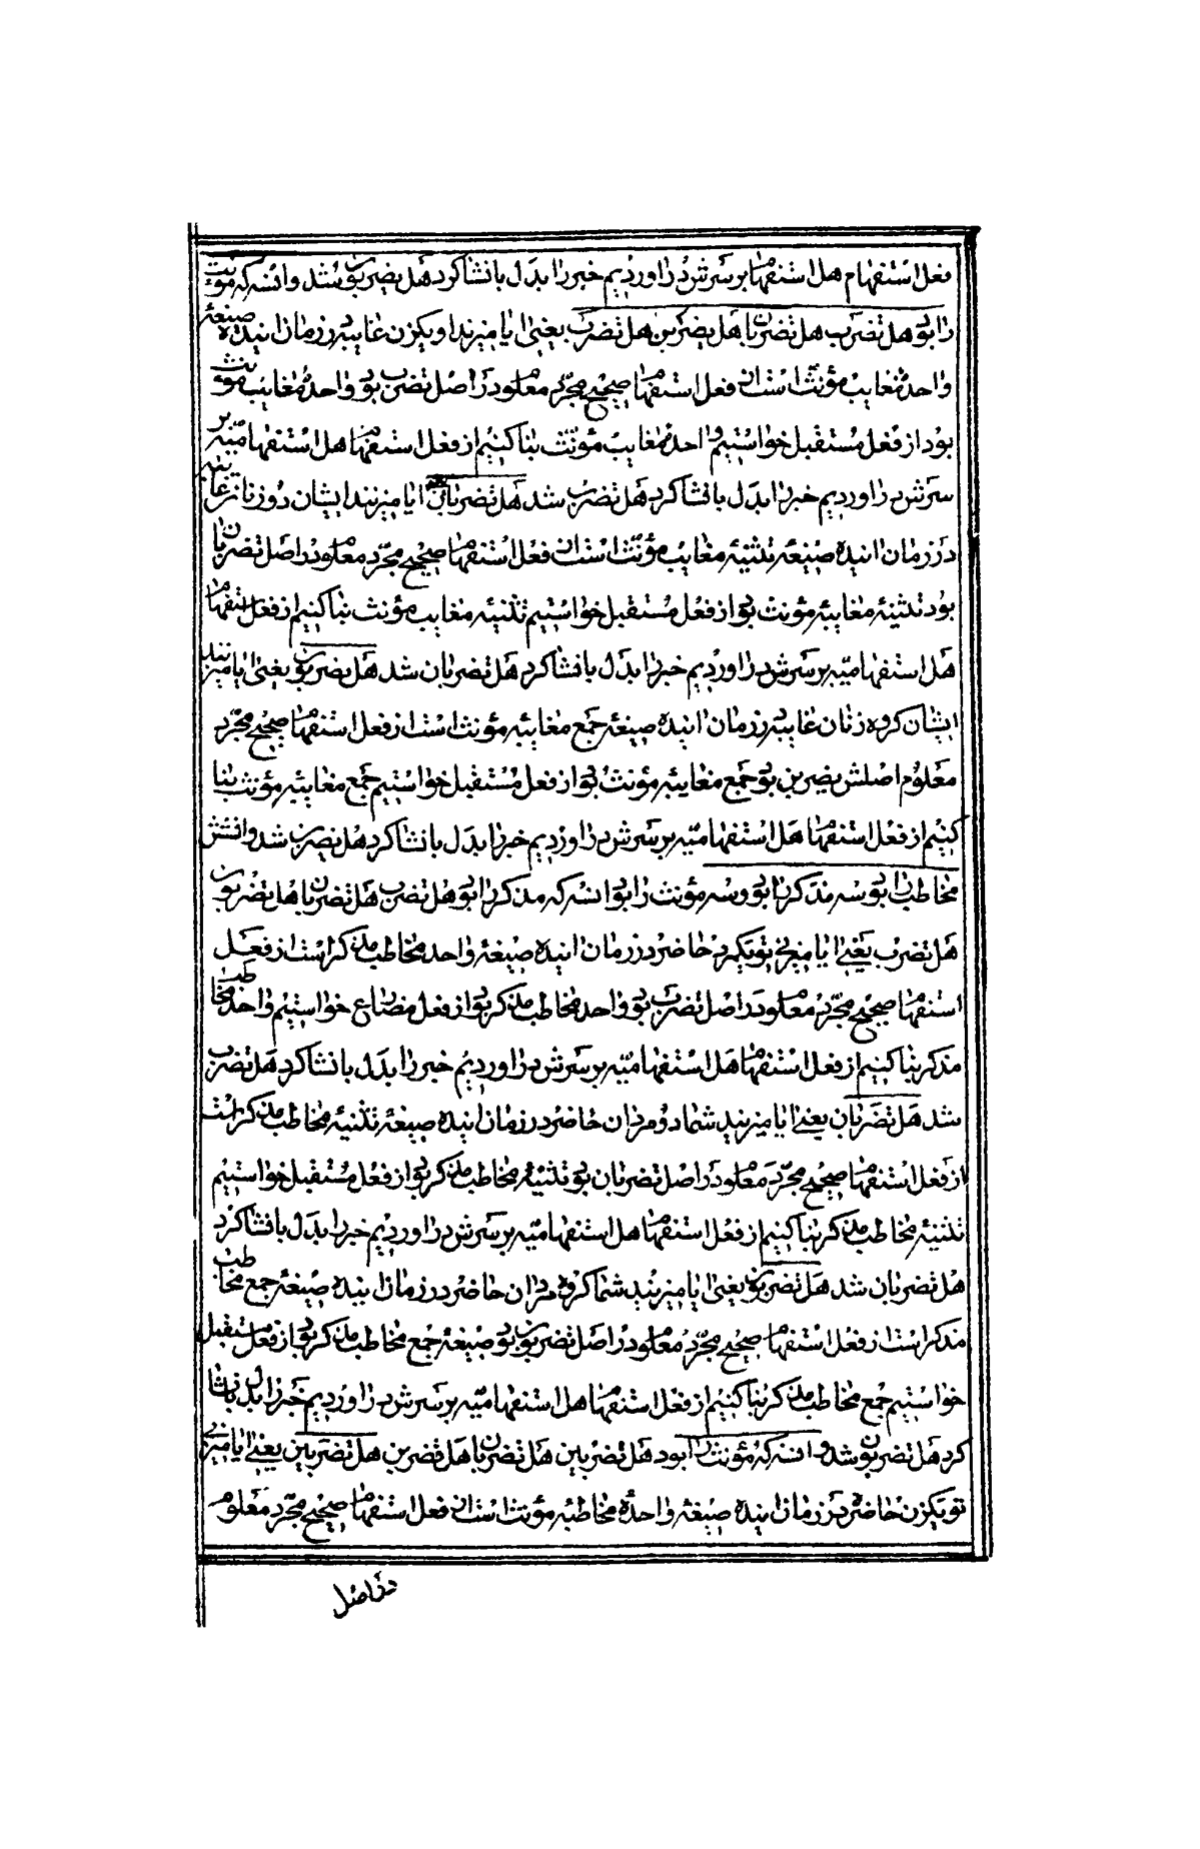 فعل استفهام هل استفهامیه بر سرش در اوردیم خبر را بدل بانشا کرد هل یضربون شد وان سه که مؤنث
را بود هل تضرب هل تضربان هل یضربن هل تضرب یعنی ایا میزند او یکزن غایبه در زمان اینده صیغهٔ
واحدهٔ مغایب مؤنث است از فعل استفهام صحیح مجرد معلوم در اصل تضرب بود واحدهٔ مغایب مؤنث
بود از فعل مستقبل خواستیم واحدهٔ مغایب مؤنث بنا کنیم از فعل استفهام هل استفهامیه بر
سرش در اوردیم خبر را بدل بانشا کرد هل تضرب شد هل تضربان ایا میزنند ایشان دو زنان غایبه
در زمان اینده صیغهٔ تثنیهٔ مغایب مؤنث است از فعل استفهام صحیح مجرد معلوم در اصل تضربان
بود تثنیهٔ مغایبهٔ مؤنث بود از فعل مستقبل خواستیم تثنیهٔ مغایب مؤنث بنا کنیم از فعل استفهام
هل استفهامیه بر سرش در اوردیم خبر را بدل بانشا کرد هل تضربان شد هل یضربن یعنی ایا میزنند
ایشان کروه زنان غایبه در زمان اینده صیغهٔ جمع مغایبهٔ مؤنث است از فعل استفهام صحیح مجرد
معلوم اصلش یضربن بود جمع مغایبهٔ مؤنث بود از فعل مستقبل خواستیم جمع مغایبهٔ مؤنث بنا
کنیم از فعل استفهام هل استفهامیه بر سرش در اوردیم خبر را بدل بانشا کرد هل یضربن شد وان شش
مخاطب را بود سه مذکر را بود وسه مؤنث را بود ان سه که مذکر را بود هل تضرب هل تضربان هل تضربون
هل تضرب یعنی ایا میزنی تو یکمرد حاضر در زمان اینده صیغهٔ واحد مخاطب مذکر است از فعل
استفهام صحیح مجرد معلوم در اصل تضرب بود واحد مخاطب مذکر بود از فعل مضارع خواستیم واحد مخاطب
مذکر بنا کنیم از فعل استفهام هل استفهامیه بر سرش در اوردیم خبر را بدل بانشا کرد هل تضرب
شد هل تضربان یعنی ایا میزنید شما دو مردان حاضر در زمان اینده صیغهٔ تثنیهٔ مخاطب مذکر است
از فعل استفهام صحیح مجرد معلوم در اصل تضربان بود تثنیهٔ مخاطب مذکر بود از فعل مستقبل خواستیم
تثنیهٔ مخاطب مذکر بنا کنیم از فعل استفهام هل استفهامیه بر سرش در اوردیم خبر را بدل بانشا کرد
هل تضربان شد هل تضربون یعنی ایا میزنید شما کروه مردان حاضر در زمان اینده صیغهٔ جمع مخاطب
مذکر است از فعل استفهام صحیح مجرد معلوم در اصل تضربون بود صیغهٔ جمع مخاطب مذکر بود از فعل مستقبل
خواستیم جمع مخاطب مذکر بنا کنیم از فعل استفهام هل استفهامیه بر سرش در اوردیم خبر را بدل بانشا
کرد هل تضربون شد وان سه که مؤنث را بود هل تضربین هل تضربان هل تضربن هل تضربین یعنی ایا میزنی
تو یکزن حاضره در زمان اینده صیغهٔ واحدهٔ مخاطبهٔ مؤنث است از فعل استفهام صحیح مجرد معلوم
در اصل